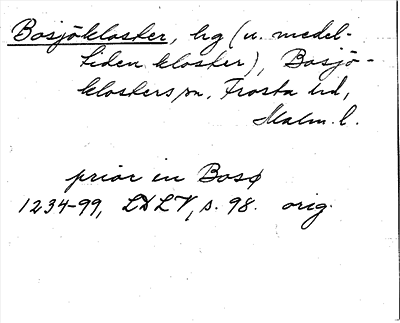 Bosjökloster, hg (u. medel-
tiden kloster), Bosjö-
klosters sn, Frosta hd,
Malm. l.
prior in Bosø
1234-99, LDLV, s. 98. orig.